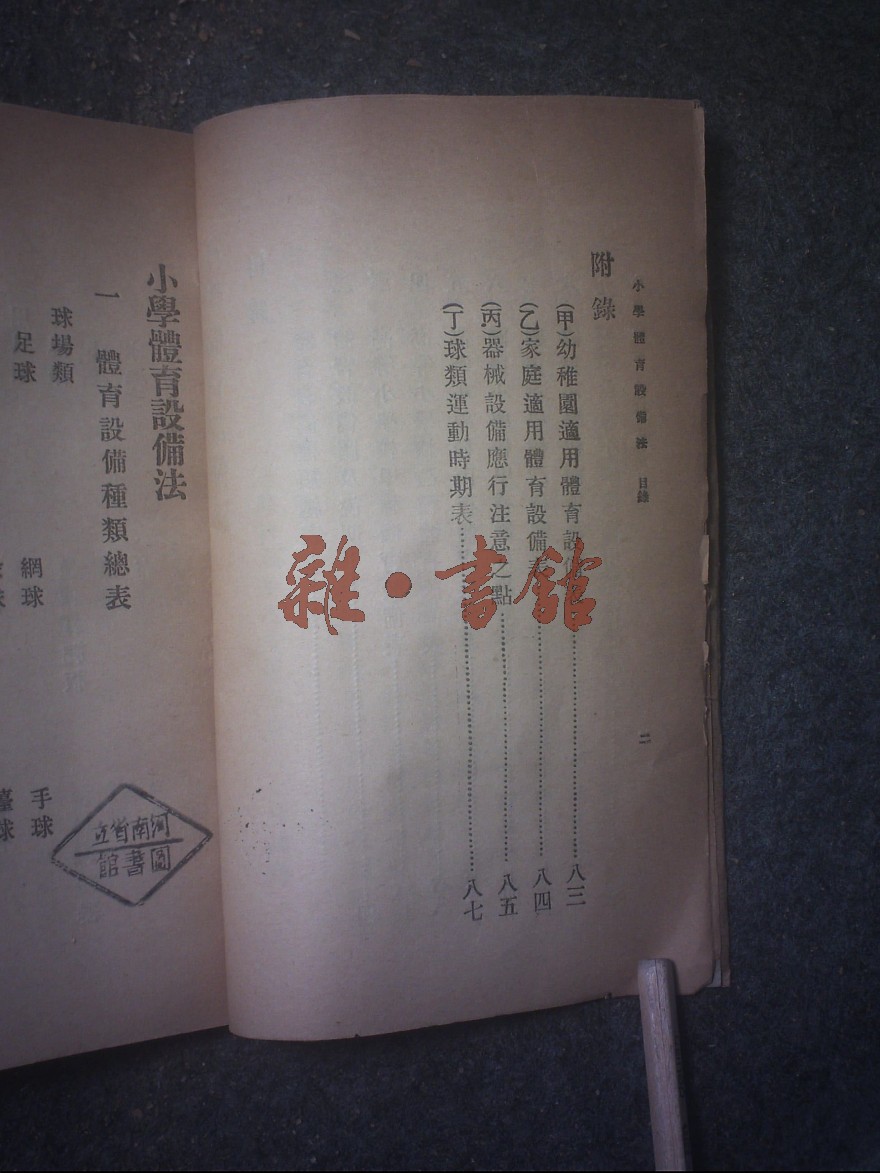 小學體育設備法 目錄
二
附錄
(甲)幼稚園適用體育設備……八三
(乙)家庭適用體育設備表……八四
(丙)器械設備應行注意之點……八五
(丁)球類運動時期表……八七
雜·書館
小學體育設備法
一 體育設備種類總表
球場類
網球 手球
足球
河南省立
圖書館